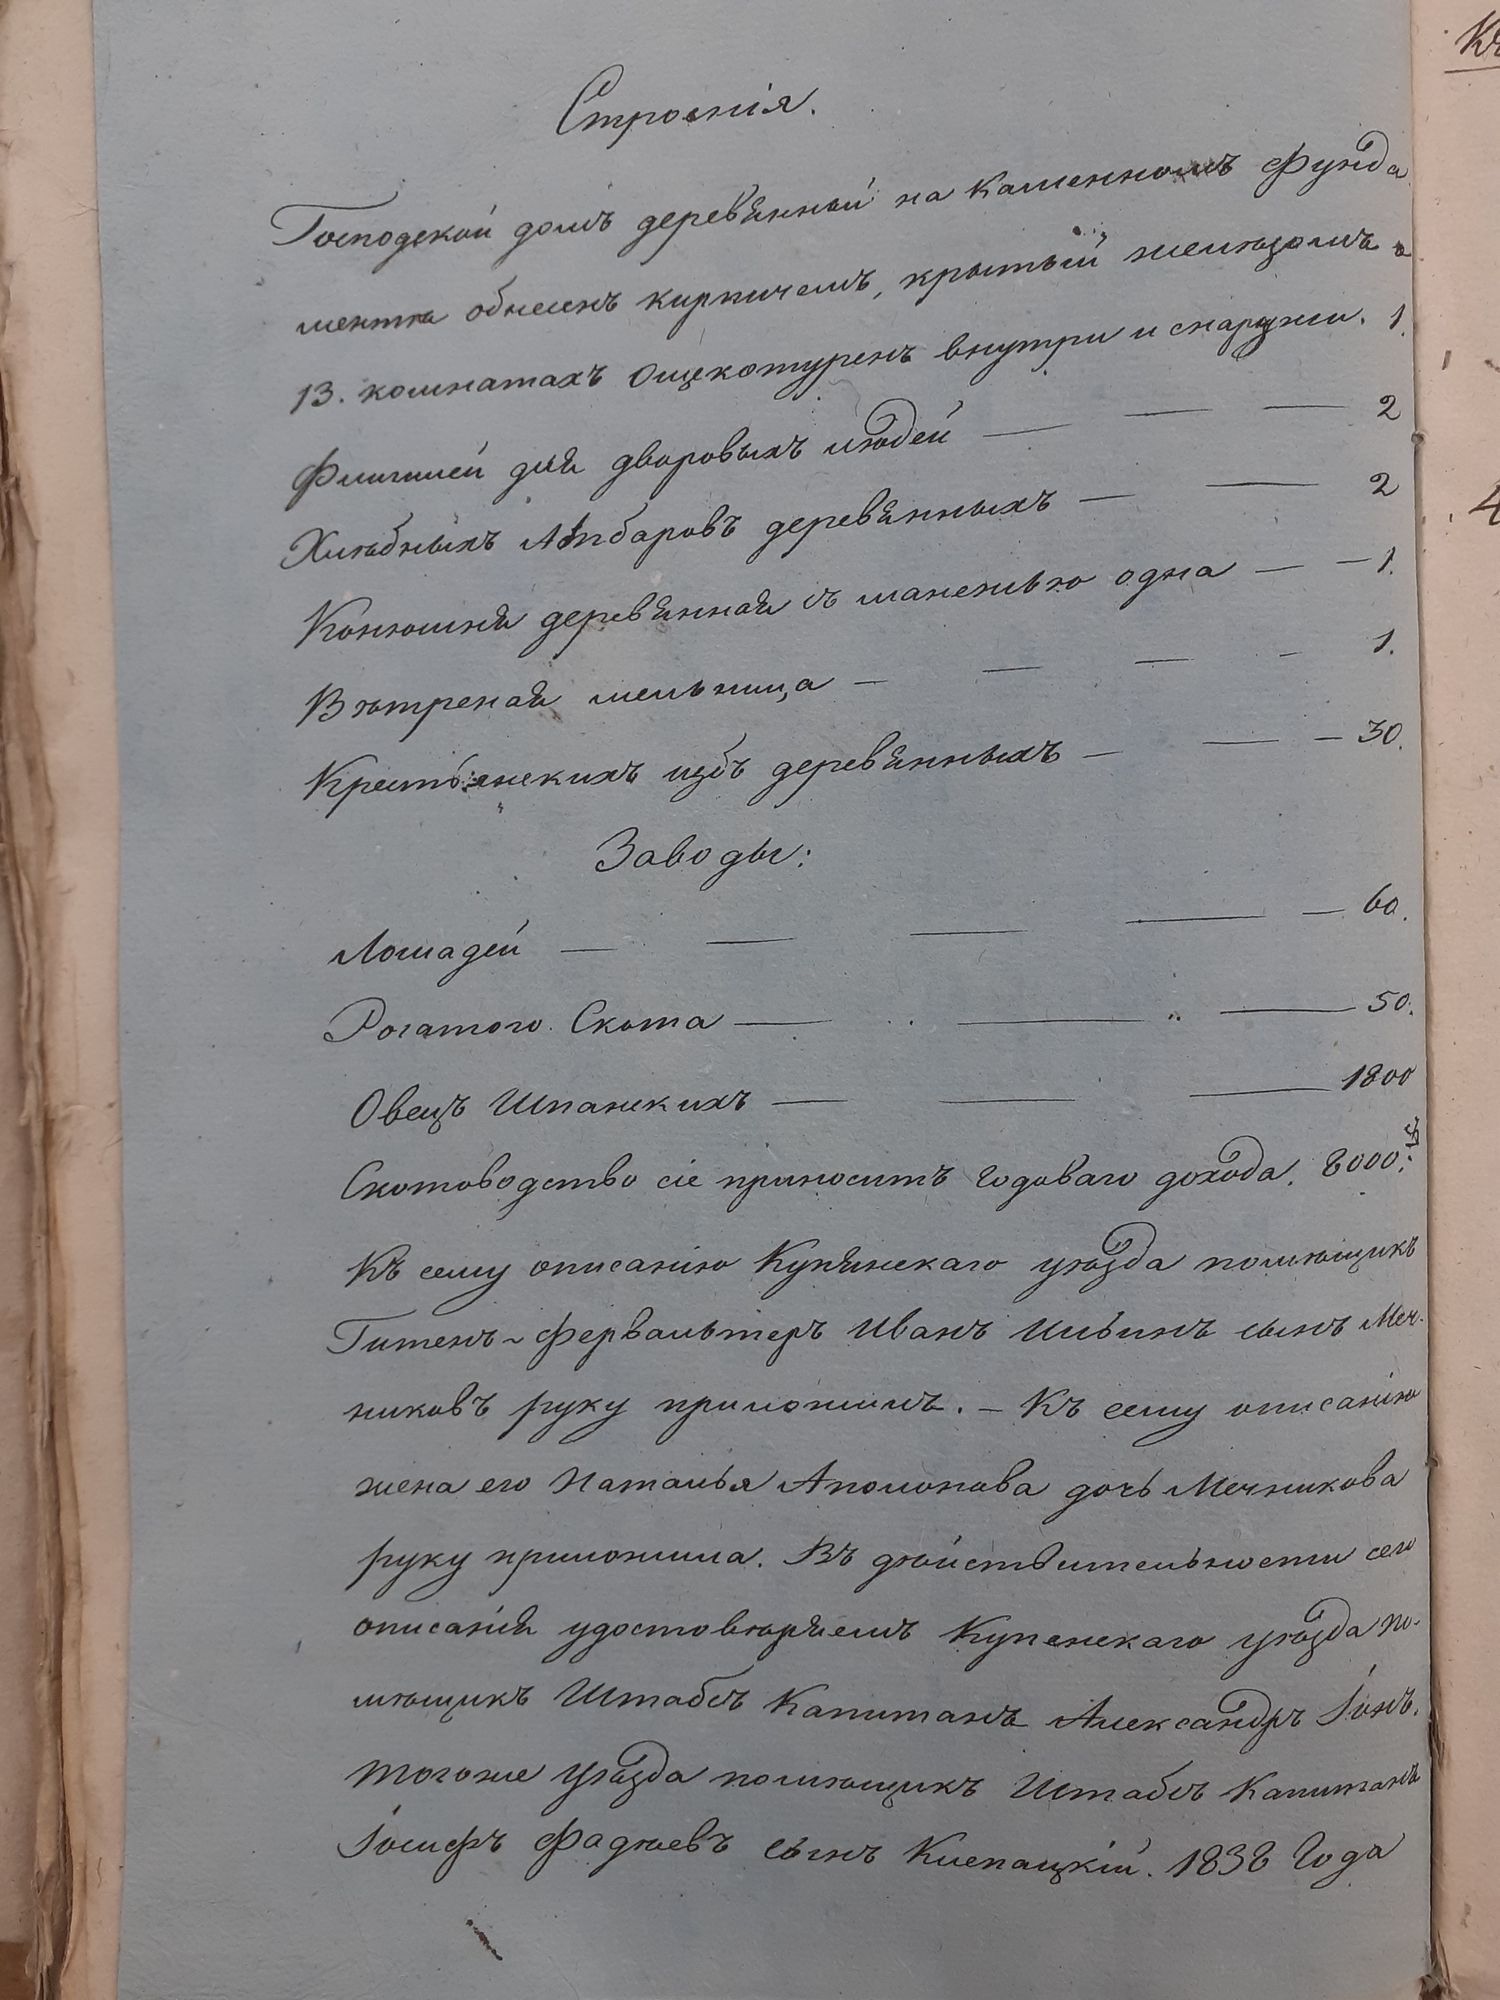 Строенія.
Господской домъ деревянный на каменномъ фунда
мента обнесенъ кирпичемъ, крытый желѣзомъ о
13. комнатахъ ощекотуренъ внутри и снаружи. 1.
Флигилей для дворовыхъ людей — — — 2
Хлѣбныхъ Анбаровъ деревянныхъ — — 2
Конюшня деревянная съ манежью одна — — 1.
Вѣтреная мельница — — — — 1.
Крестьянскихъ избъ деревянныхъ — — — 30.
Заводы:
Лошадей — — — — — 60.
Рогатого Скота — — — 50.
Овецъ Шпанскихъ — — — 1800
Скотоводство сіе приноситъ годоваго дохода. 8000.
Къ сему описанію Купянскаго уѣзда помѣщикъ
Гитенъ-фервальтеръ Иванъ Ильинъ сынъ Меч-
никовъ руку приложилъ. — Къ сему описанію
жена его Наталья Аполонова дочь Мечникова
руку приложила. Въ дѣйствительности сего
описанія удостовѣряемъ Купенскаго уѣзда по-
мѣщикъ Штабсъ Капитанъ Александръ Іонъ.
тогоже Уѣзда помѣщикъ Штабсъ Капитанъ
Іосифъ Фадѣевъ сынъ Клепацкій. 1838 Года